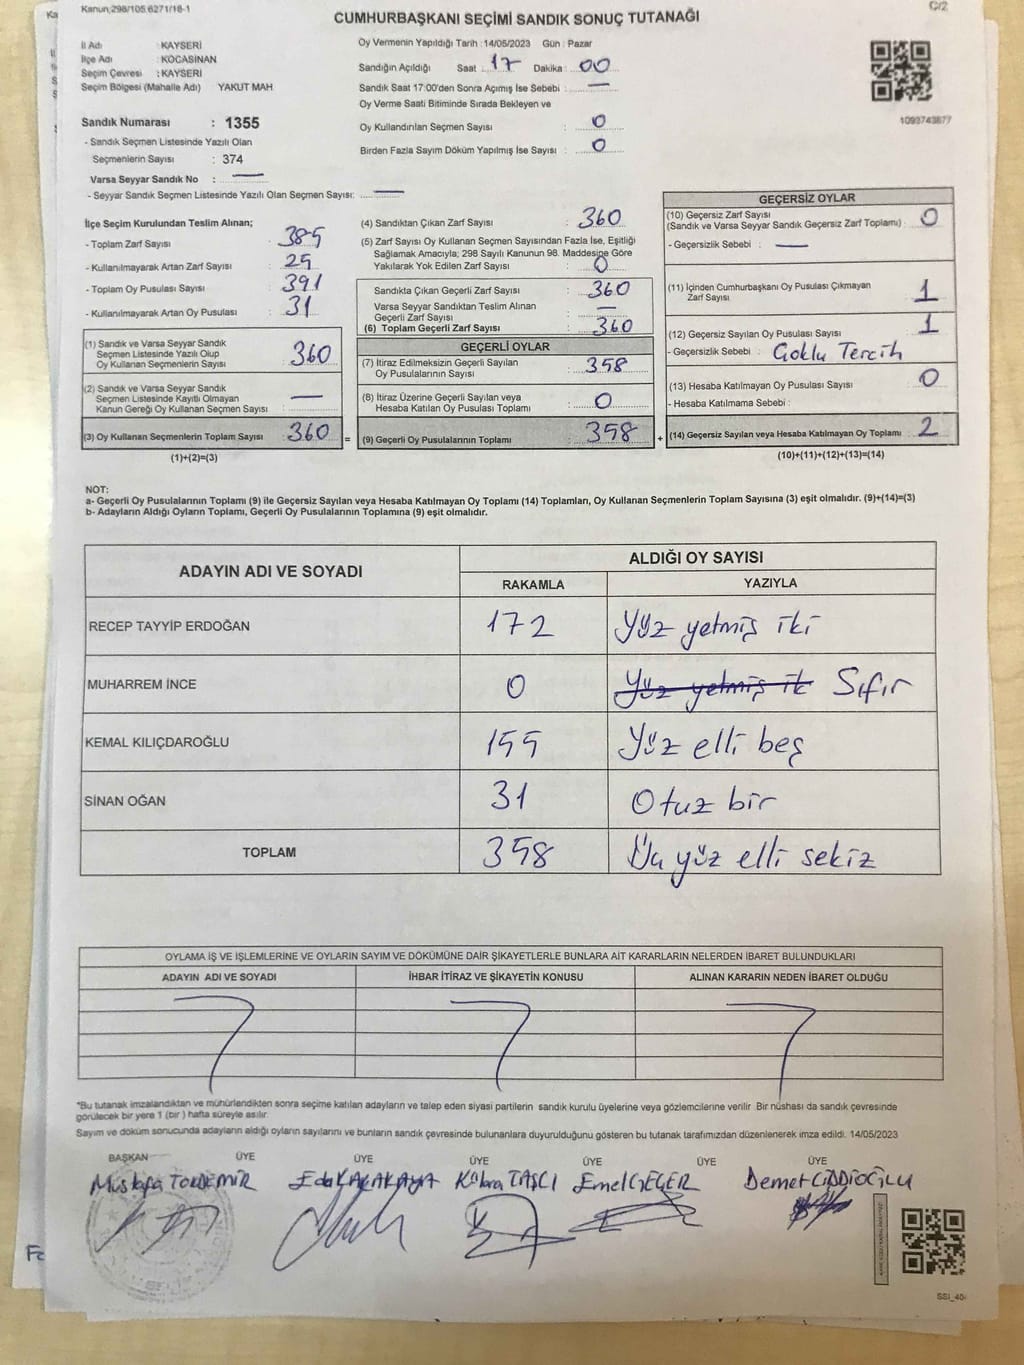 Kanun;298/105,6271/18-1
C/2
CUMHURBAŞKANI SEÇİMİ SANDIK SONUÇ TUTANAĞI
İl Adı : KAYSERİ
İlçe Adı : KOCASİNAN
Seçim Çevresi : KAYSERİ
Seçim Bölgesi (Mahalle Adı) YAKUT MAH
Sandık Numarası : 1355
- Sandık Seçmen Listesinde Yazılı Olan
Seçmenlerin Sayısı : 374
Varsa Seyyar Sandık No : —
- Seyyar Sandık Seçmen Listesinde Yazılı Olan Seçmen Sayısı: —
Oy Vermenin Yapıldığı Tarih : 14/05/2023 Gün : Pazar
Sandığın Açıldığı Saat : 17 Dakika : 00
Sandık Saat 17:00'den Sonra Açımış İse Sebebi : —
Oy Verme Saati Bitiminde Sırada Bekleyen ve
Oy Kullandırılan Seçmen Sayısı : 0
Birden Fazla Sayım Döküm Yapılmış İse Sayısı : 0
1093743877
İlçe Seçim Kurulundan Teslim Alınan;
- Toplam Zarf Sayısı : 385
- Kullanılmayarak Artan Zarf Sayısı : 25
- Toplam Oy Pusulası Sayısı : 391
- Kullanılmayarak Artan Oy Pusulası : 31
(1) Sandık ve Varsa Seyyar Sandık
Seçmen Listesinde Yazılı Olup
Oy Kullanan Seçmenlerin Sayısı : 360
(2) Sandık ve Varsa Seyyar Sandık
Seçmen Listesinde Kayıtlı Olmayan
Kanun Gereği Oy Kullanan Seçmen Sayısı : —
(3) Oy Kullanan Seçmenlerin Toplam Sayısı : 360 =
(1)+(2)=(3)
(4) Sandıktan Çıkan Zarf Sayısı : 360
(5) Zarf Sayısı Oy Kullanan Seçmen Sayısından Fazla İse, Eşitliği
Sağlamak Amacıyla; 298 Sayılı Kanunun 98. Maddesine Göre
Yakılarak Yok Edilen Zarf Sayısı : 0
Sandıkta Çıkan Geçerli Zarf Sayısı : 360
Varsa Seyyar Sandıktan Teslim Alınan
Geçerli Zarf Sayısı : —
(6) Toplam Geçerli Zarf Sayısı : 360
GEÇERLİ OYLAR
(7) İtiraz Edilmeksizin Geçerli Sayılan
Oy Pusulalarının Sayısı : 358
(8) İtiraz Üzerine Geçerli Sayılan veya
Hesaba Katılan Oy Pusulası Toplamı : 0
(9) Geçerli Oy Pusulalarının Toplamı : 358 +
GEÇERSİZ OYLAR
(10) Geçersiz Zarf Sayısı
(Sandık ve Varsa Seyyar Sandık Geçersiz Zarf Toplamı) : 0
- Geçersizlik Sebebi : —
(11) İçinden Cumhurbaşkanı Oy Pusulası Çıkmayan
Zarf Sayısı : 1
(12) Geçersiz Sayılan Oy Pusulası Sayısı : 1
- Geçersizlik Sebebi : Çoklu Tercih
(13) Hesaba Katılmayan Oy Pusulası Sayısı : 0
- Hesaba Katılmama Sebebi :
(14) Geçersiz Sayılan veya Hesaba Katılmayan Oy Toplamı : 2
(10)+(11)+(12)+(13)=(14)
NOT:
a- Geçerli Oy Pusulalarının Toplamı (9) ile Geçersiz Sayılan veya Hesaba Katılmayan Oy Toplamı (14) Toplamları, Oy Kullanan Seçmenlerin Toplam Sayısına (3) eşit olmalıdır. (9)+(14)=(3)
b- Adayların Aldığı Oyların Toplamı, Geçerli Oy Pusulalarının Toplamına (9) eşit olmalıdır.
ADAYIN ADI VE SOYADI
ALDIĞI OY SAYISI
RAKAMLA YAZIYLA
RECEP TAYYİP ERDOĞAN 172 Yüz yetmiş iki
MUHARREM İNCE 0 Yüz yetmiş ik Sıfır
KEMAL KILIÇDAROĞLU 155 Yüz elli beş
SİNAN OĞAN 31 Otuz bir
TOPLAM 358 Üç yüz elli sekiz
OYLAMA İŞ VE İŞLEMLERİNE VE OYLARIN SAYIM VE DÖKÜMÜNE DAİR ŞİKAYETLERLE BUNLARA AİT KARARLARIN NELERDEN İBARET BULUNDUKLARI
ADAYIN ADI VE SOYADI İHBAR İTİRAZ VE ŞİKAYETİN KONUSU ALINAN KARARIN NEDEN İBARET OLDUĞU
*Bu tutanak imzalandıktan ve mühürlendikten sonra seçime katılan adayların ve talep eden siyasi partilerin sandık kurulu üyelerine veya gözlemcilerine verilir. Bir nüshası da sandık çevresinde
görülecek bir yere 1 (bir) hafta süreyle asılır.
Sayım ve döküm sonucunda adayların aldığı oyların sayılarını ve bunların sandık çevresinde bulunanlara duyurulduğunu gösteren bu tutanak tarafımızdan düzenlenerek imza edildi. 14/05/2023
BAŞKAN ÜYE ÜYE ÜYE ÜYE ÜYE ÜYE
Mustafa TOKDEMİR Eda KARAKAYA Kübra TAŞCI Emel GEÇER Demet CİDDİOĞLU